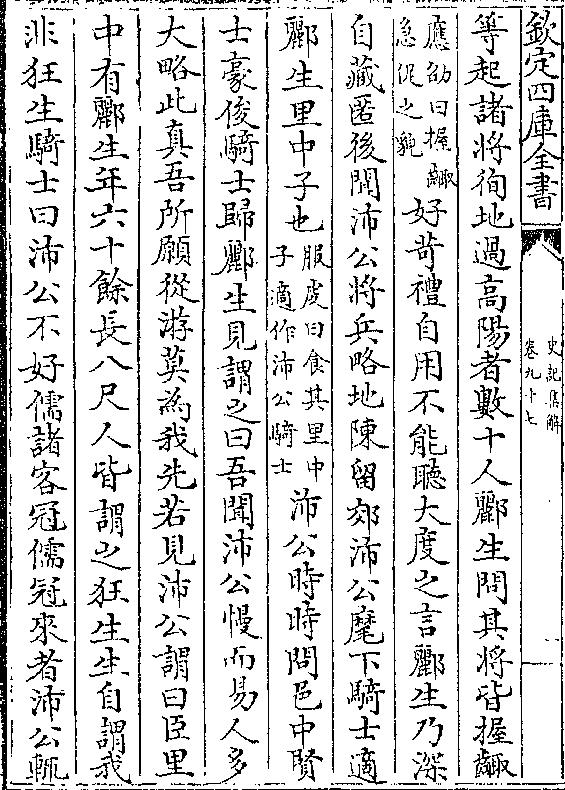 欽定四庫全書
史記集解
卷九十七
等起諸將徇地過高陽者數十人酈生問其將皆握齱
應劭曰握齱
急促之貌
好苛禮自用不能聽大度之言酈生乃深
自藏匿後聞沛公將兵略地陳留郊沛公麾下騎士適
酈生里中子也
服虔曰食其里中
子適作沛公騎士
沛公時時問邑中賢
士豪俊騎士歸酈生見謂之曰吾聞沛公慢而易人多
大略此真吾所願從游莫為我先若見沛公謂曰臣里
中有酈生年六十餘長八尺人皆謂之狂生生自謂我
非狂生騎士曰沛公不好儒諸客冠儒冠來者沛公輒